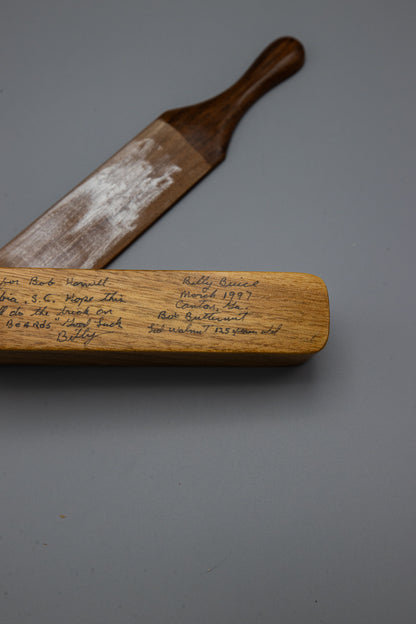 for Bob Harwell
bia, S.C. Hope this
ll do the trick on
BOARDS" Good Luck
Billy
Billy Buice
March 1997
Canton, Ga.
Box Butternut
Lid Walnut 125 years old